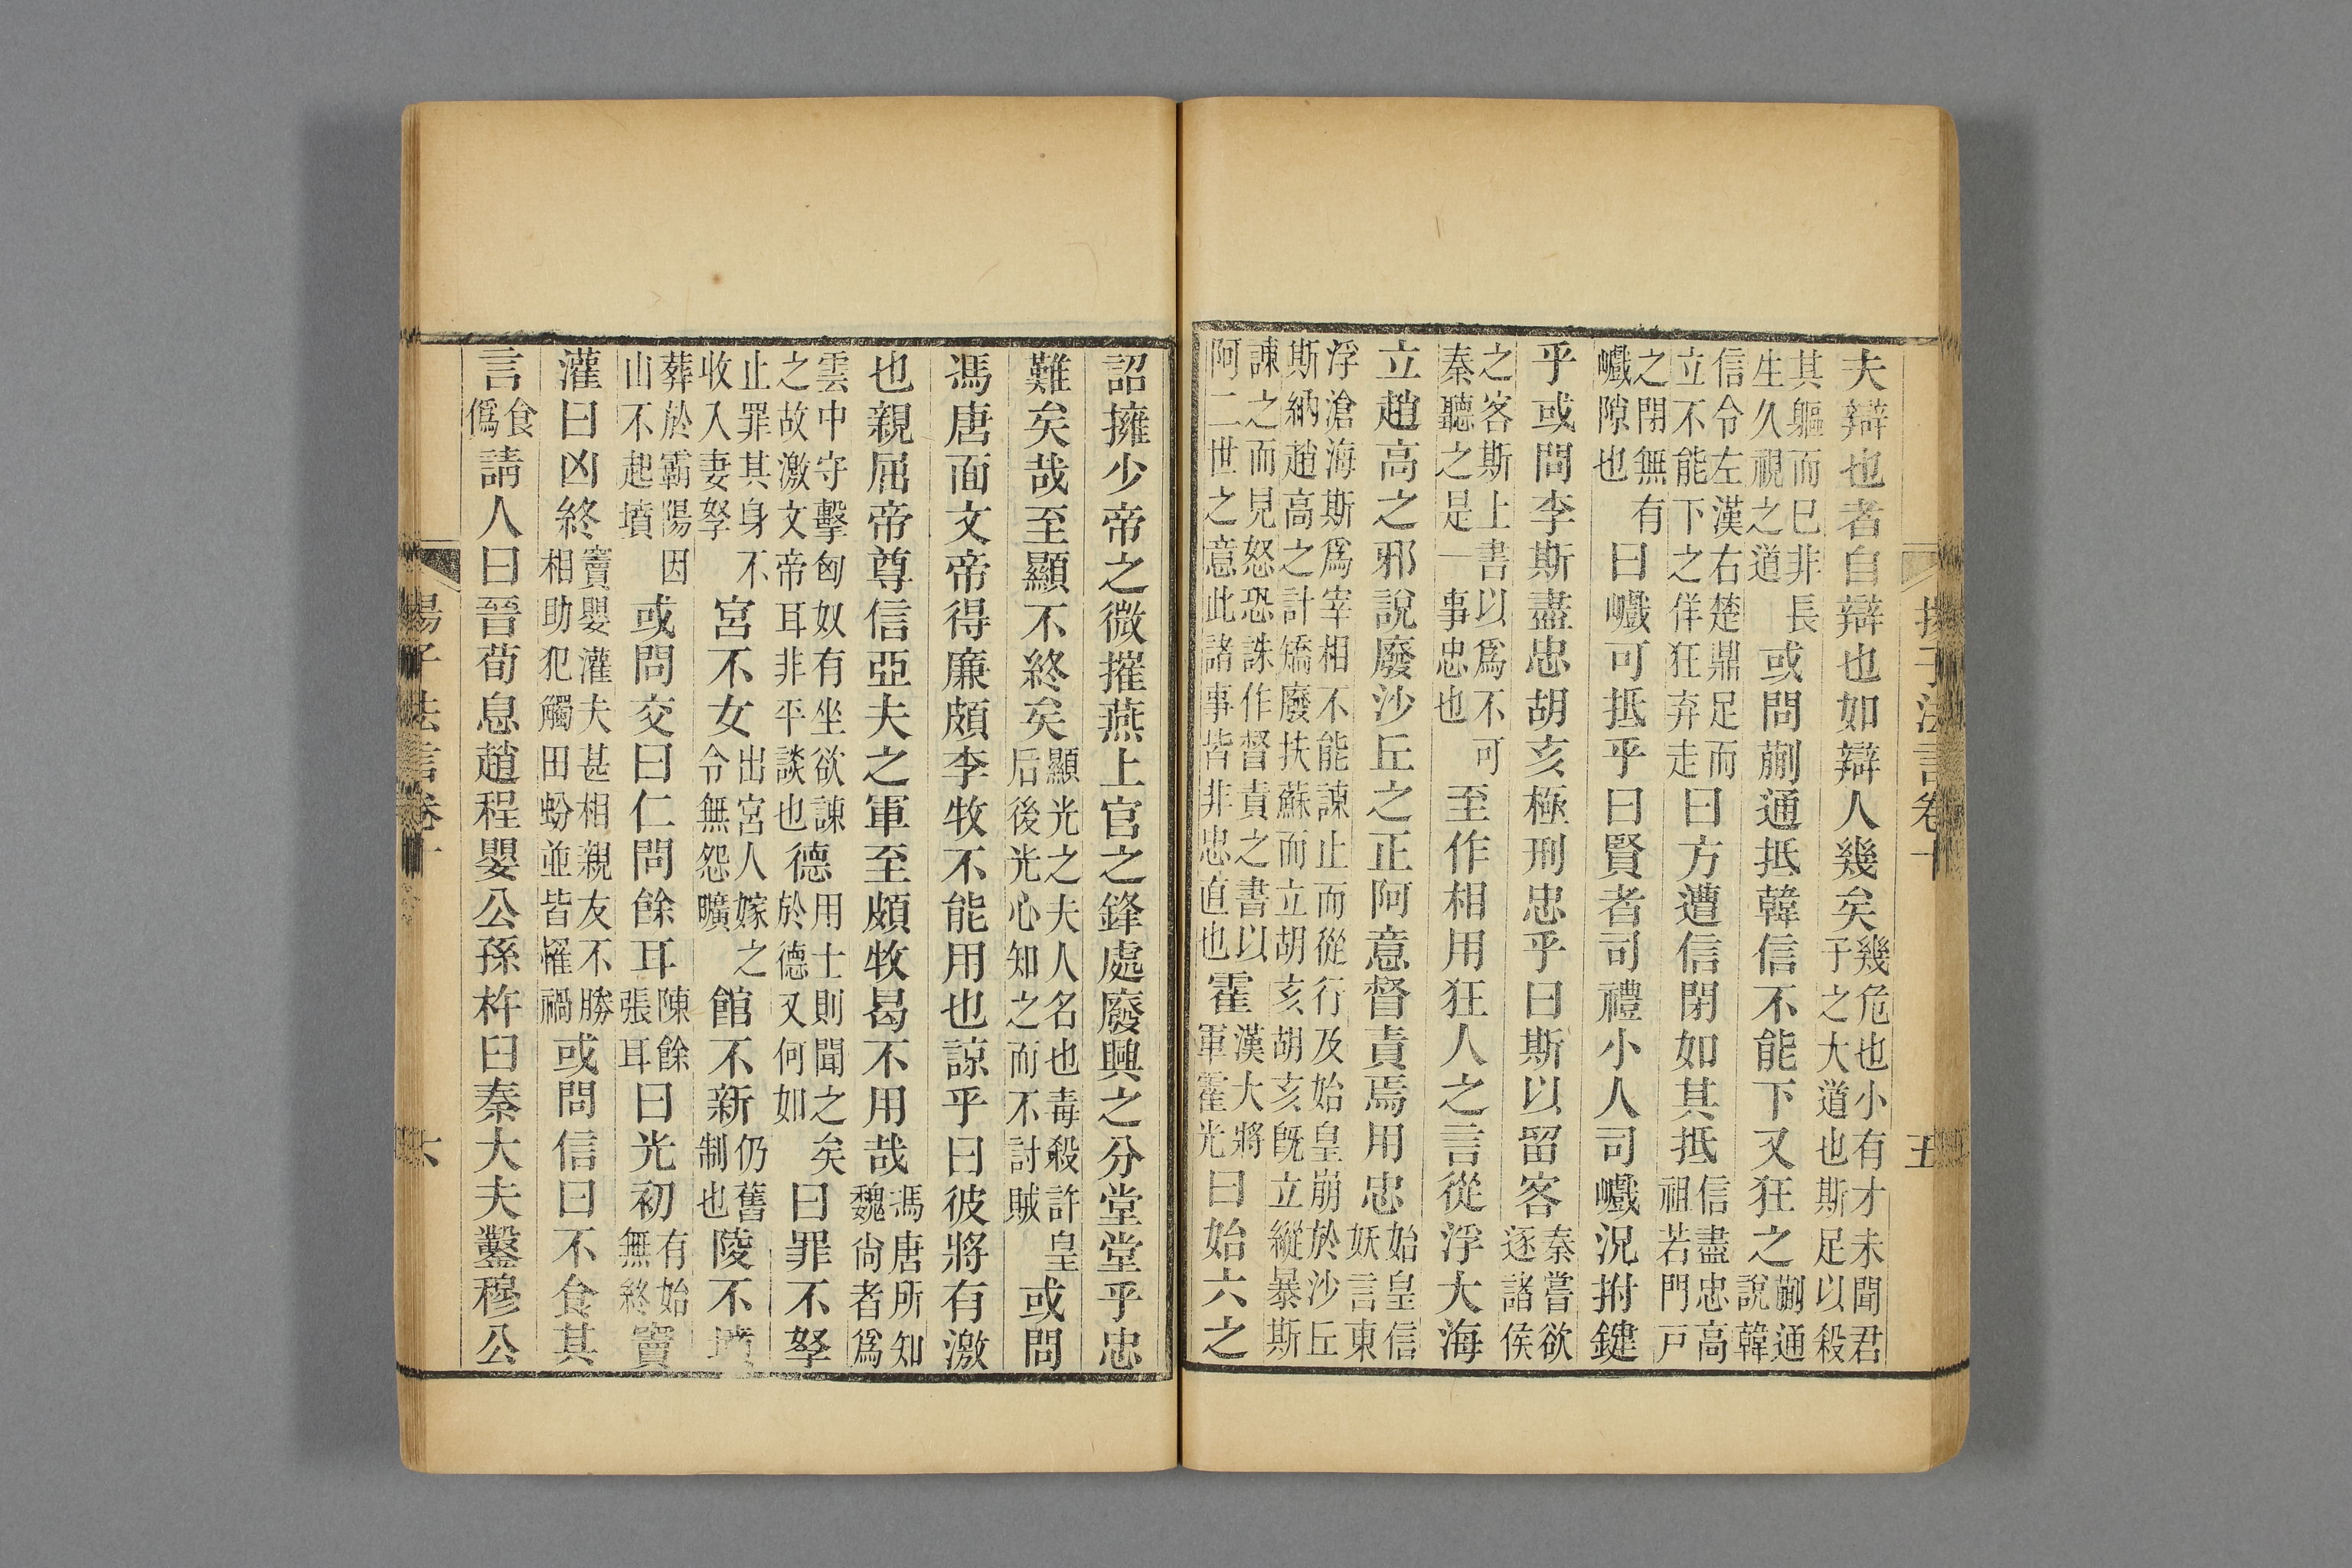 揚子法言卷十　五
夫辯也者自辯也如辯人幾矣幾危也小有才未聞君子之大道也斯足以殺
其軀而已非長生久視之道或問蒯通抵韓信不能下又狂之蒯通說韓
信令左漢右楚鼎足而立不能下之佯狂弃走曰方遭信閉如其抵信盡忠高祖若門戸
之閉無有巇隙也曰巇可抵乎曰賢者司禮小人司巇況拊鍵
乎或問李斯盡忠胡亥極刑忠乎曰斯以留客秦嘗欲逐諸侯
之客斯上書以爲不可秦聽之是一事忠也至作相用狂人之言從浮大海
立趙高之邪說廢沙丘之正阿意督責焉用忠始皇信妖言東
浮滄海斯爲宰相不能諫止而從行及始皇崩於沙丘斯納趙高之計矯廢扶蘇而立胡亥胡亥旣立縱暴斯
諫之而見怒恐誅作督責之書以阿二世之意此諸事皆非忠直也霍漢大將軍霍光曰始六之
詔擁少帝之微摧燕上官之鋒處廢興之分堂堂乎忠
難矣哉至顯不終矣顯光之夫人名也毒殺許皇后後光心知之而不討賊或問
馮唐面文帝得廉頗李牧不能用也諒乎曰彼將有激
也親屈帝尊信亞夫之軍至頗牧曷不用哉馮唐所知魏尚者爲
雲中守擊匈奴有坐欲諫之故激文帝耳非平談也德用士則聞之矣於德又何如曰罪不孥
止罪其身不收入妻孥宮不女出宮人嫁之令無怨曠館不新仍舊制也陵不墳
葬於霸陽因山不起墳或問交曰仁問餘耳陳餘張耳曰光初有始無終竇
灌曰凶終竇嬰灌夫甚相親友不勝相助犯觸田蚡並皆罹禍或問信曰不食其
言食僞請人曰晉荀息趙程嬰公孫杵臼秦大夫鑿穆公
楊子法言卷十　六